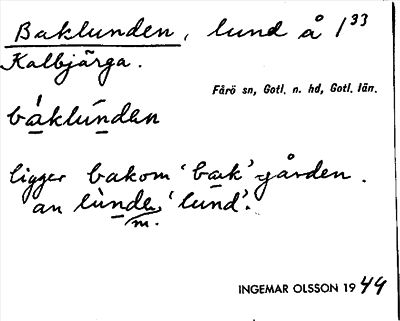 Baklunden, lund å 1³³
Kalbjärga.
Fårö sn, Gotl. n. hd, Gotl. län.
báklúnden
ligger bakom 'bak'-gården.
an lùnde, 'lund'.
m.
INGEMAR OLSSON 1944